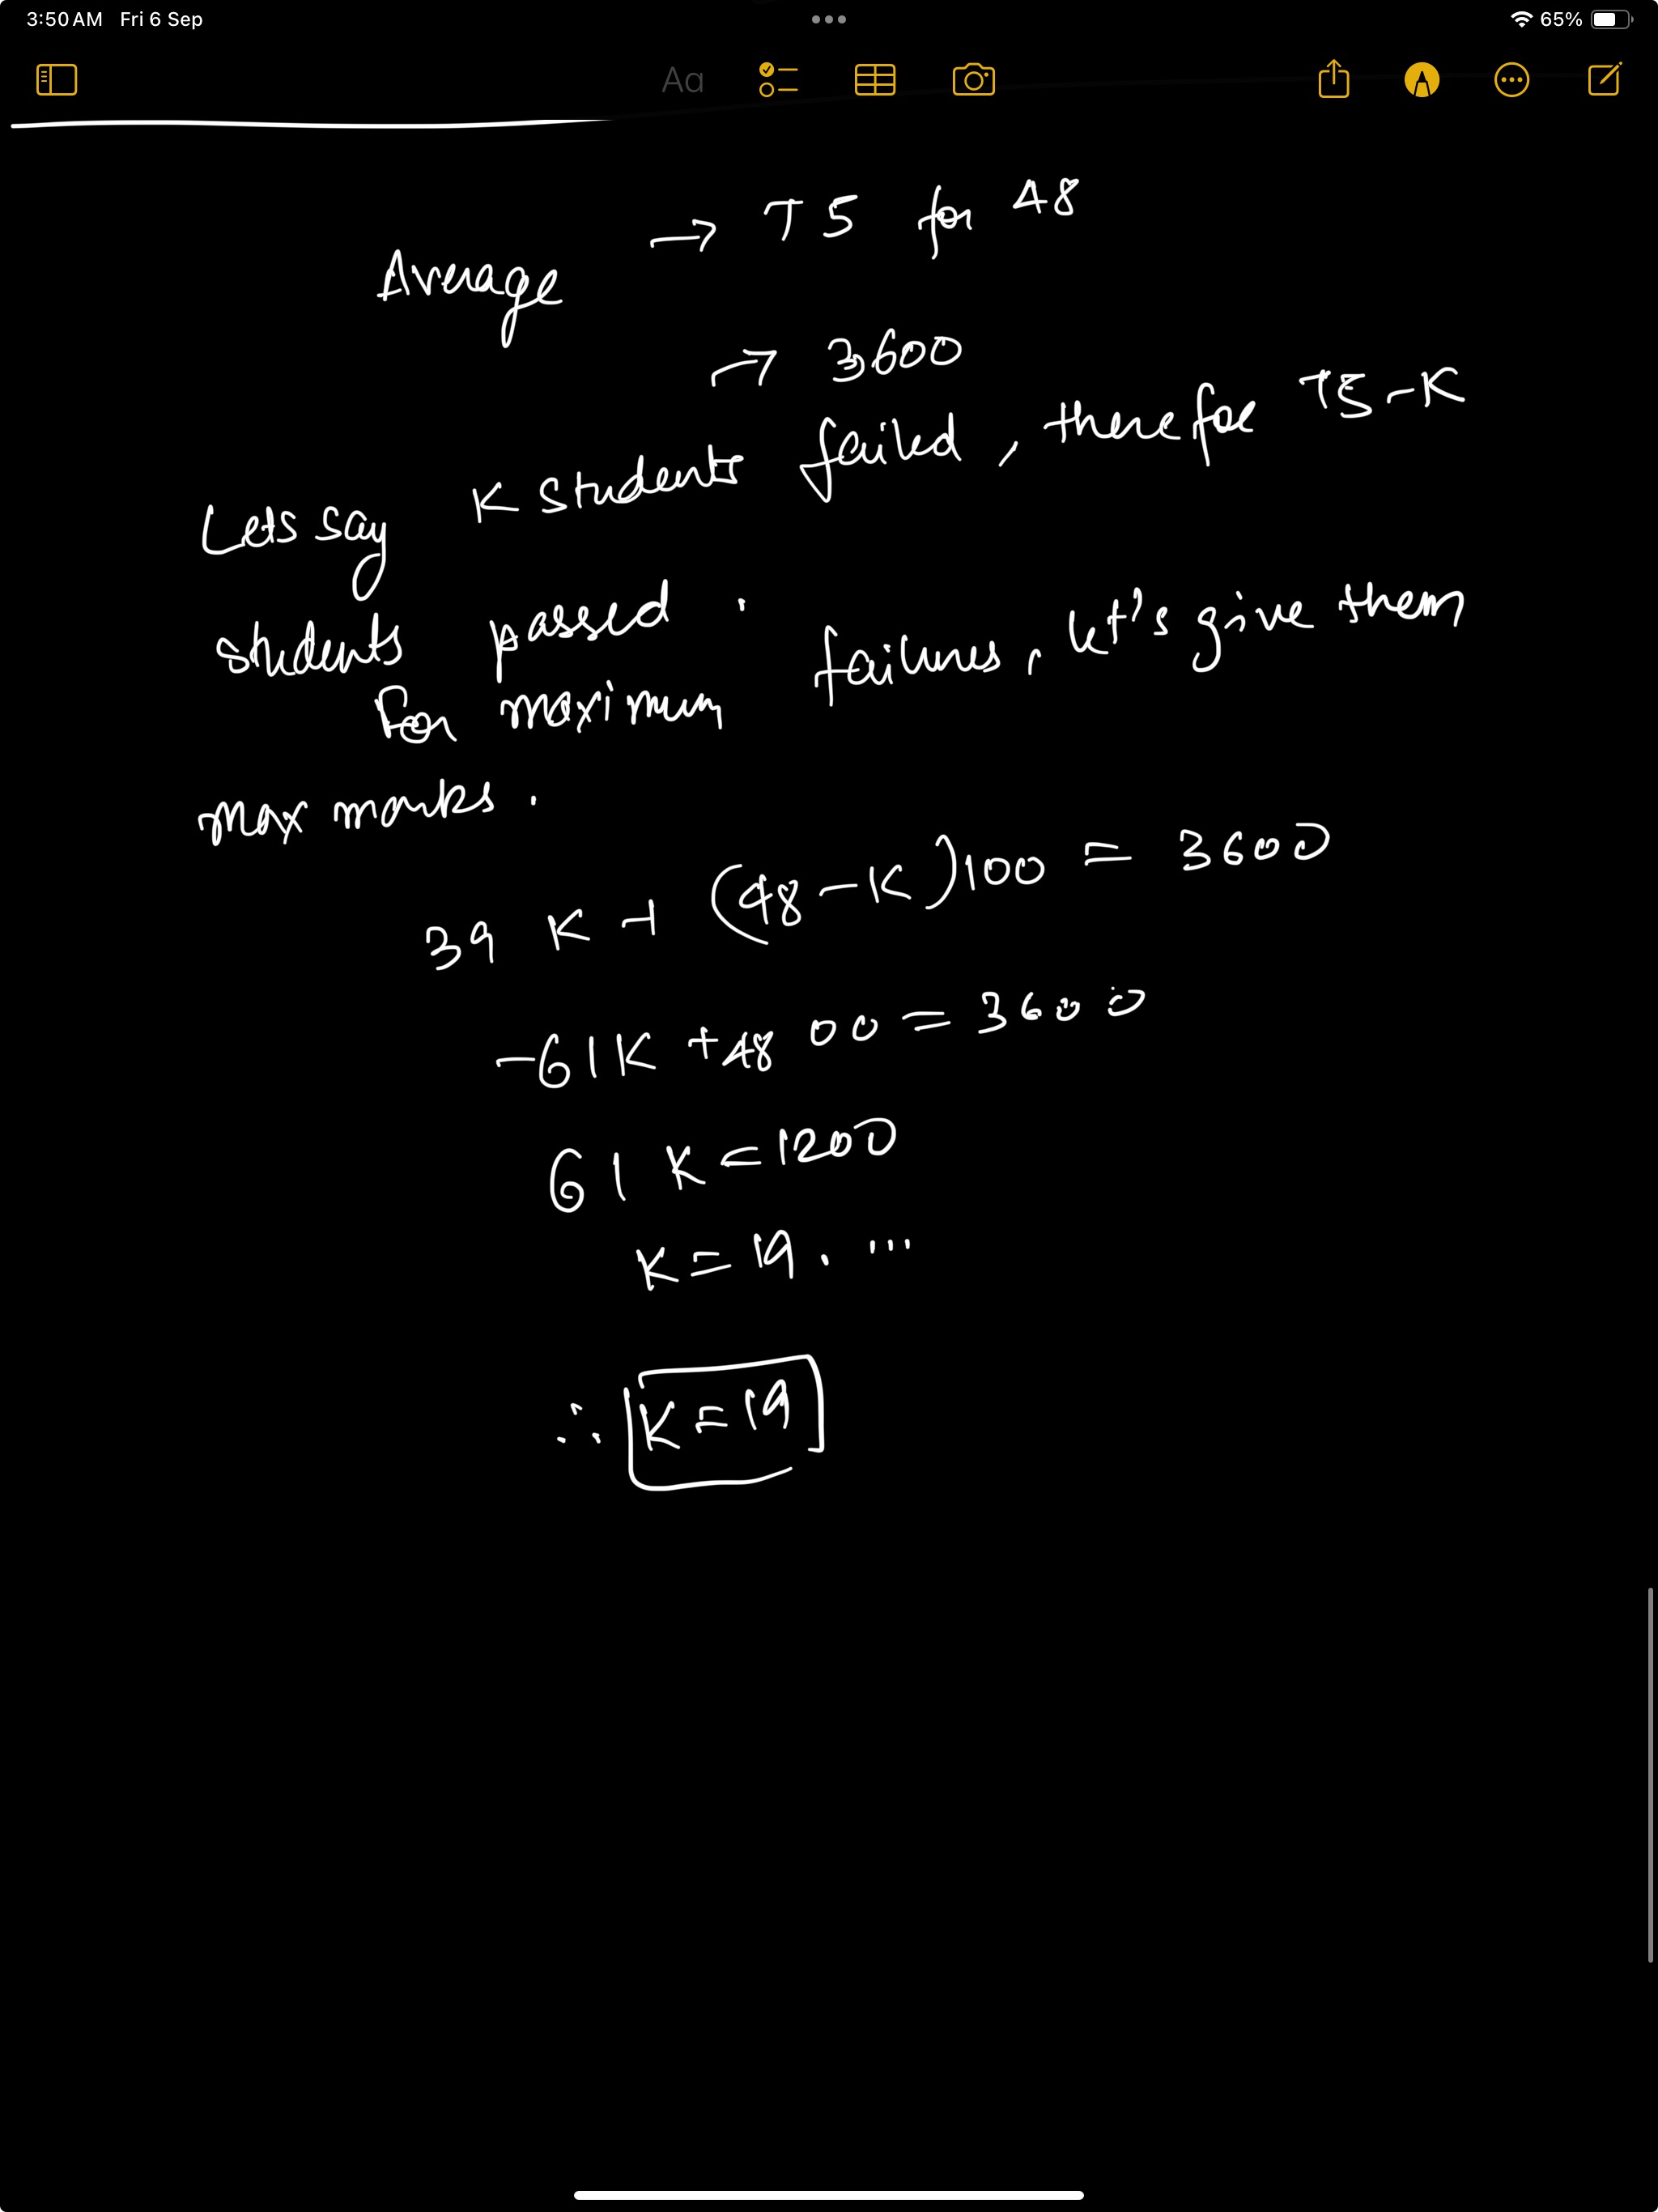 3:50 AM Fri 6 Sep
65%
Aa
Average → 75 for 48
→ 3600
Lets say K students failed, therefoe 75-K
students passed.
For maximum failures, let's give them
max marks.
39 K + (48-K)100 = 3600
-61K +4800 = 3600
61 K = 1200
K = 19. ...
∴ K = 19